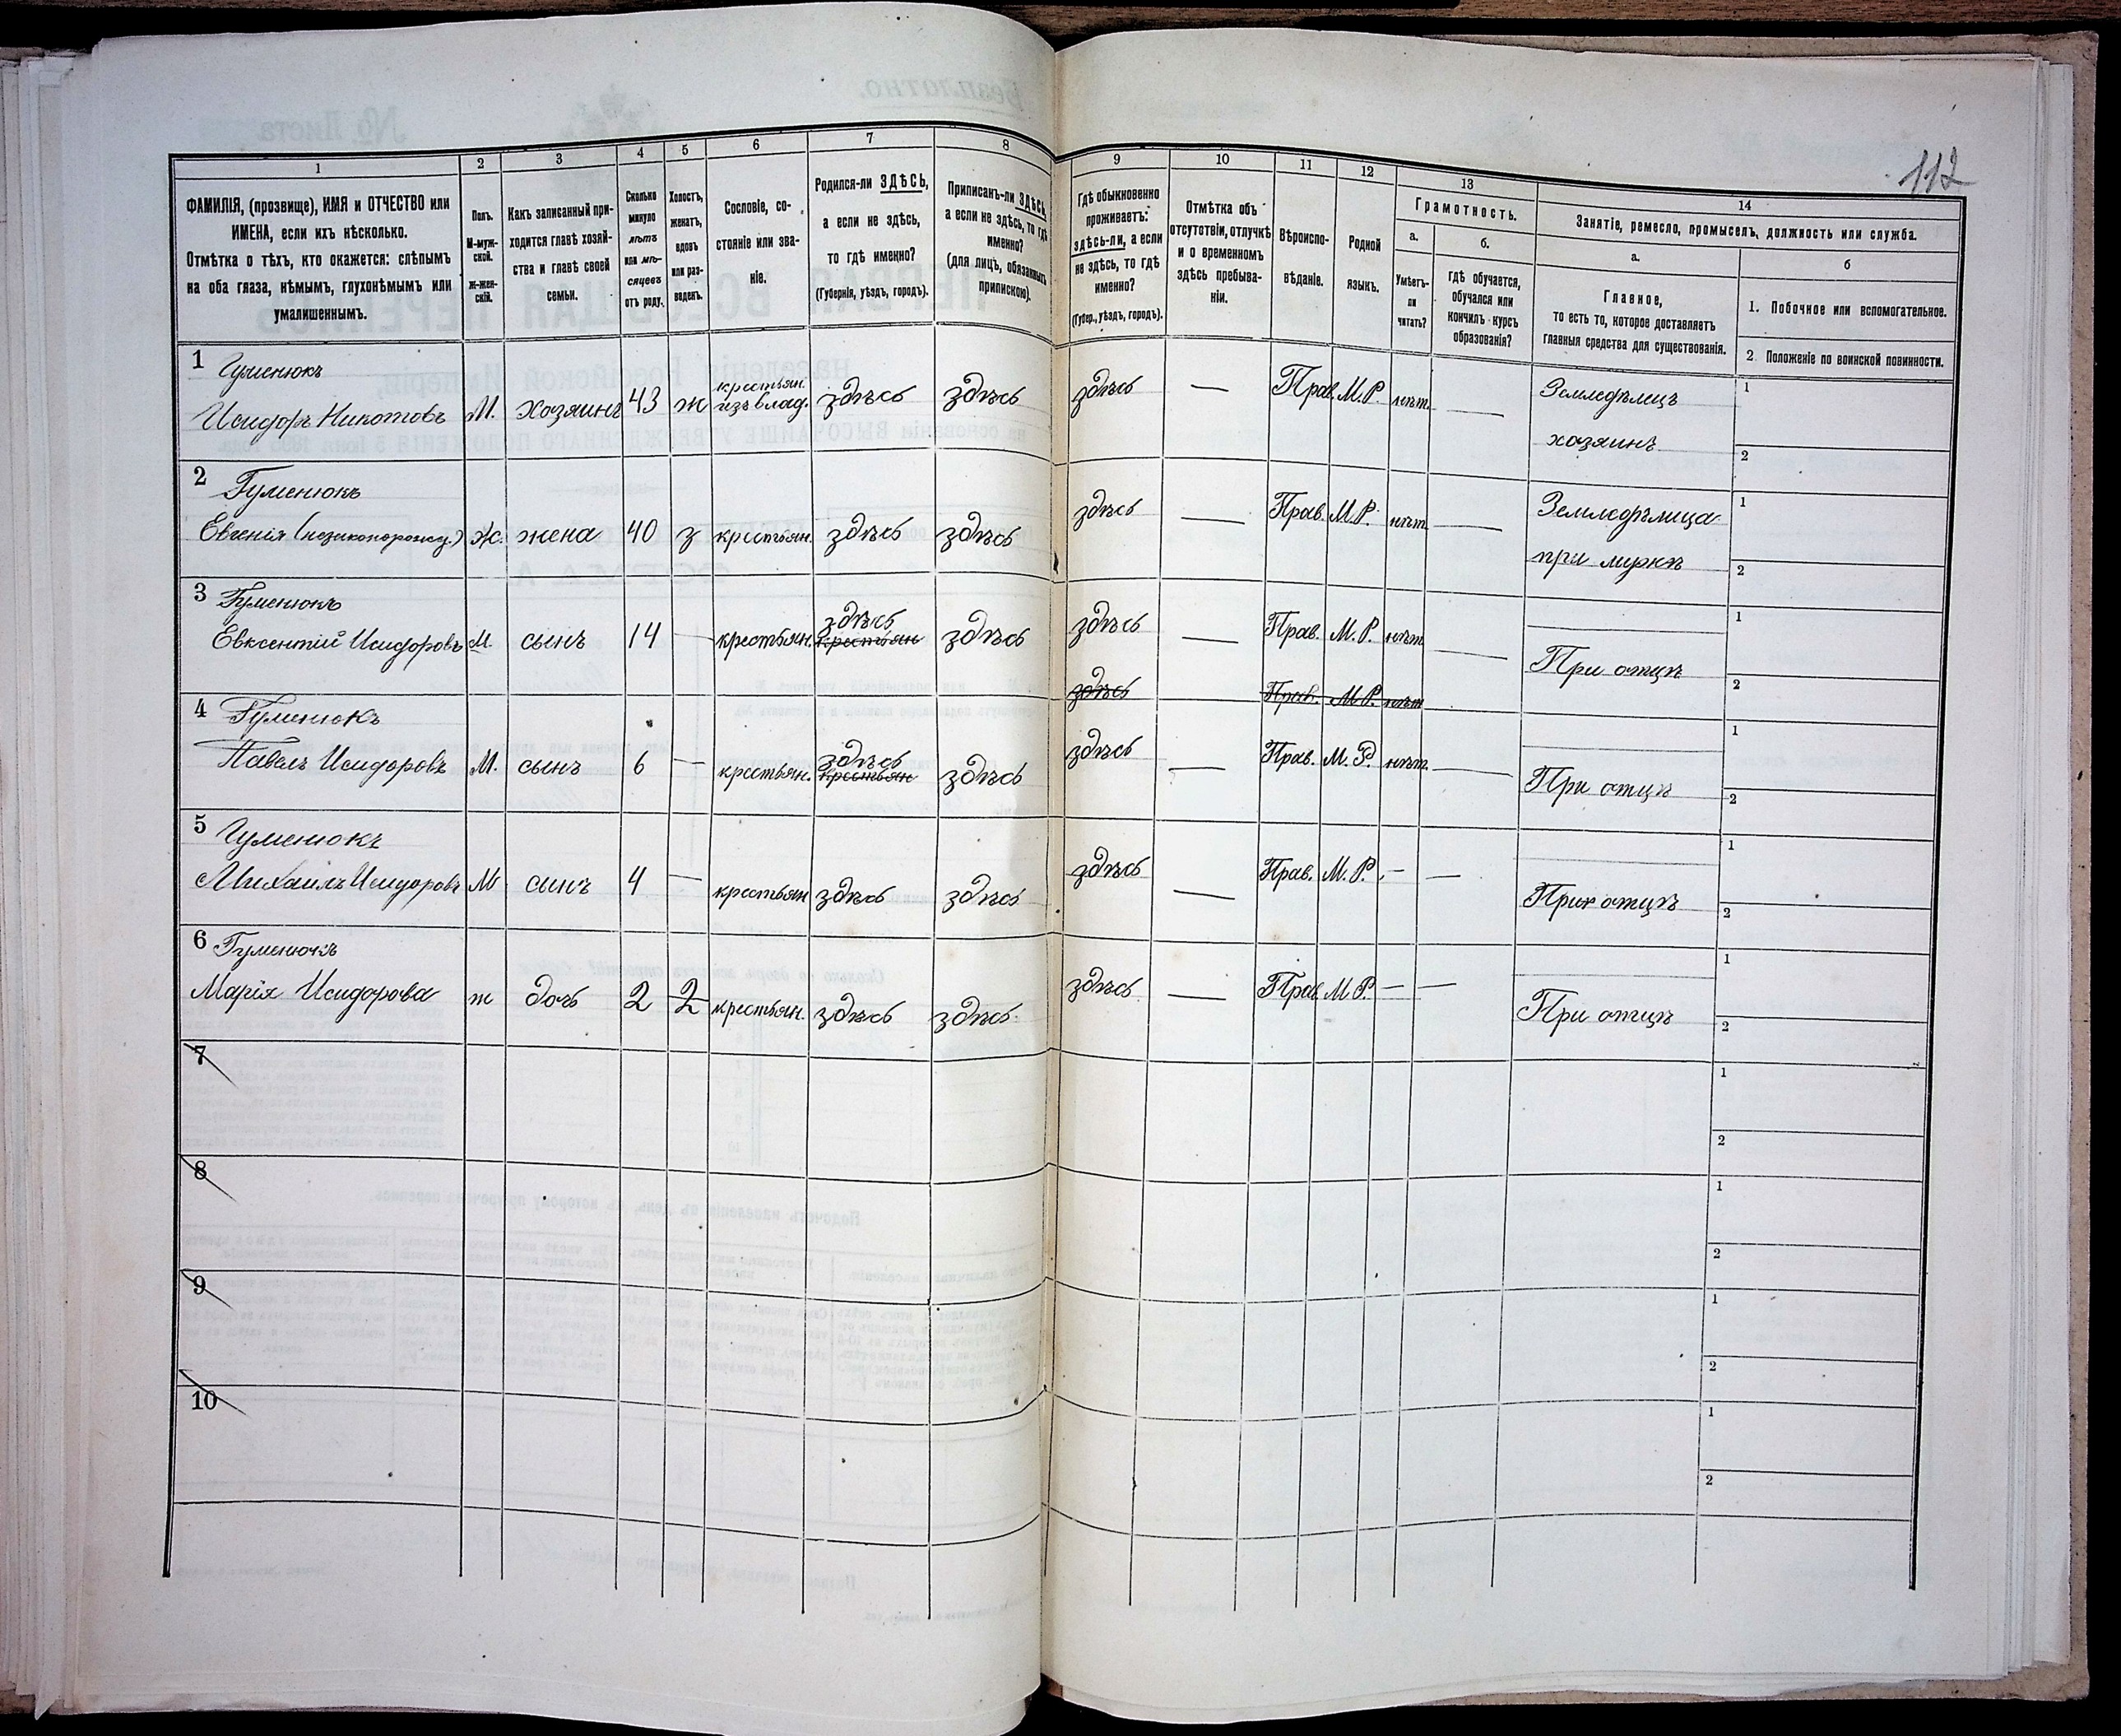 112
1
2
3
4
5
6
7
8
9
10
11
12
13
14
ФАМИЛІЯ, (прозвище), ИМЯ и ОТЧЕСТВО или
ИМЕНА, если ихъ нѣсколько.
Отмѣтка о тѣхъ, кто окажется: слѣпымъ
на оба глаза, нѣмымъ, глухонѣмымъ или
умалишеннымъ.
Полъ.
М-муж-
ской.
ж-жен-
скій.
Какъ записанный при-
ходится главѣ хозяй-
ства и главѣ своей
семьи.
Сколько
минуло
лѣтъ
или мѣ-
сяцевъ
отъ роду.
Холостъ,
женатъ,
вдовъ
или раз-
веденъ.
Сословіе, со-
стояніе или зва-
ніе.
Родился-ли ЗДѢСЬ,
а если не здѣсь,
то гдѣ именно?
(Губернія, уѣздъ, городъ).
Приписанъ-ли ЗДѢСЬ,
а если не здѣсь, то гдѣ
именно?
(для лицъ, обязанныхъ
припискою).
Гдѣ обыкновенно
проживаетъ:
здѣсь-ли, а если
не здѣсь, то гдѣ
именно?
(Губер., уѣздъ, городъ).
Отмѣтка объ
отсутствіи, отлучкѣ
и о временномъ
здѣсь пребыва-
ніи.
Вѣроиспо-
вѣданіе.
Родной
языкъ.
Грамотность.
а.
Умѣетъ-
ли
читать?
б.
гдѣ обучается,
обучался или
кончилъ курсъ
образованія?
Занятіе, ремесло, промыселъ, должность или служба.
а.
Главное,
то есть то, которое доставляетъ
главныя средства для существованія.
б
1. Побочное или вспомогательное.
2. Положеніе по воинской повинности.
1 Гуменюкъ
Исидоръ Никитовъ М. хозяинъ 43 ж крестьян. изъ влад. здѣсь здѣсь здѣсь — Прав. М.Р. нѣт. — Земледѣлецъ
хозяинъ
1
2
2 Гуменюкъ
Евгенія М. жена 40 з крестьян. здѣсь здѣсь здѣсь — Прав. М.Р. нѣт. — Земледѣлица
при мужѣ
1
2
3 Гуменюкъ
Евксентій Исидоровъ М. сынъ 14 — крестьян. здѣсь крестьян здѣсь здѣсь — Прав. М.Р. нѣт. — При отцѣ
1
2
здѣсь Прав. М.Р. нѣт
4 Гуменюкъ
Павелъ Исидоровъ М. сынъ 6 — крестьян. здѣсь крестьян здѣсь здѣсь — Прав. М.Р. нѣт. — При отцѣ
1
2
5 Гуменюкъ
Михаилъ Исидоровъ М сынъ 4 — крестьян здѣсь здѣсь здѣсь — Прав. М.Р. — — При отцѣ
1
2
6 Гуменюкъ
Марія Исидорова ж дочь 2 2 крестьян. здѣсь здѣсь здѣсь — Прав. М.Р. — — При отцѣ
1
2
7
1
2
8
1
2
9
1
2
10
1
2